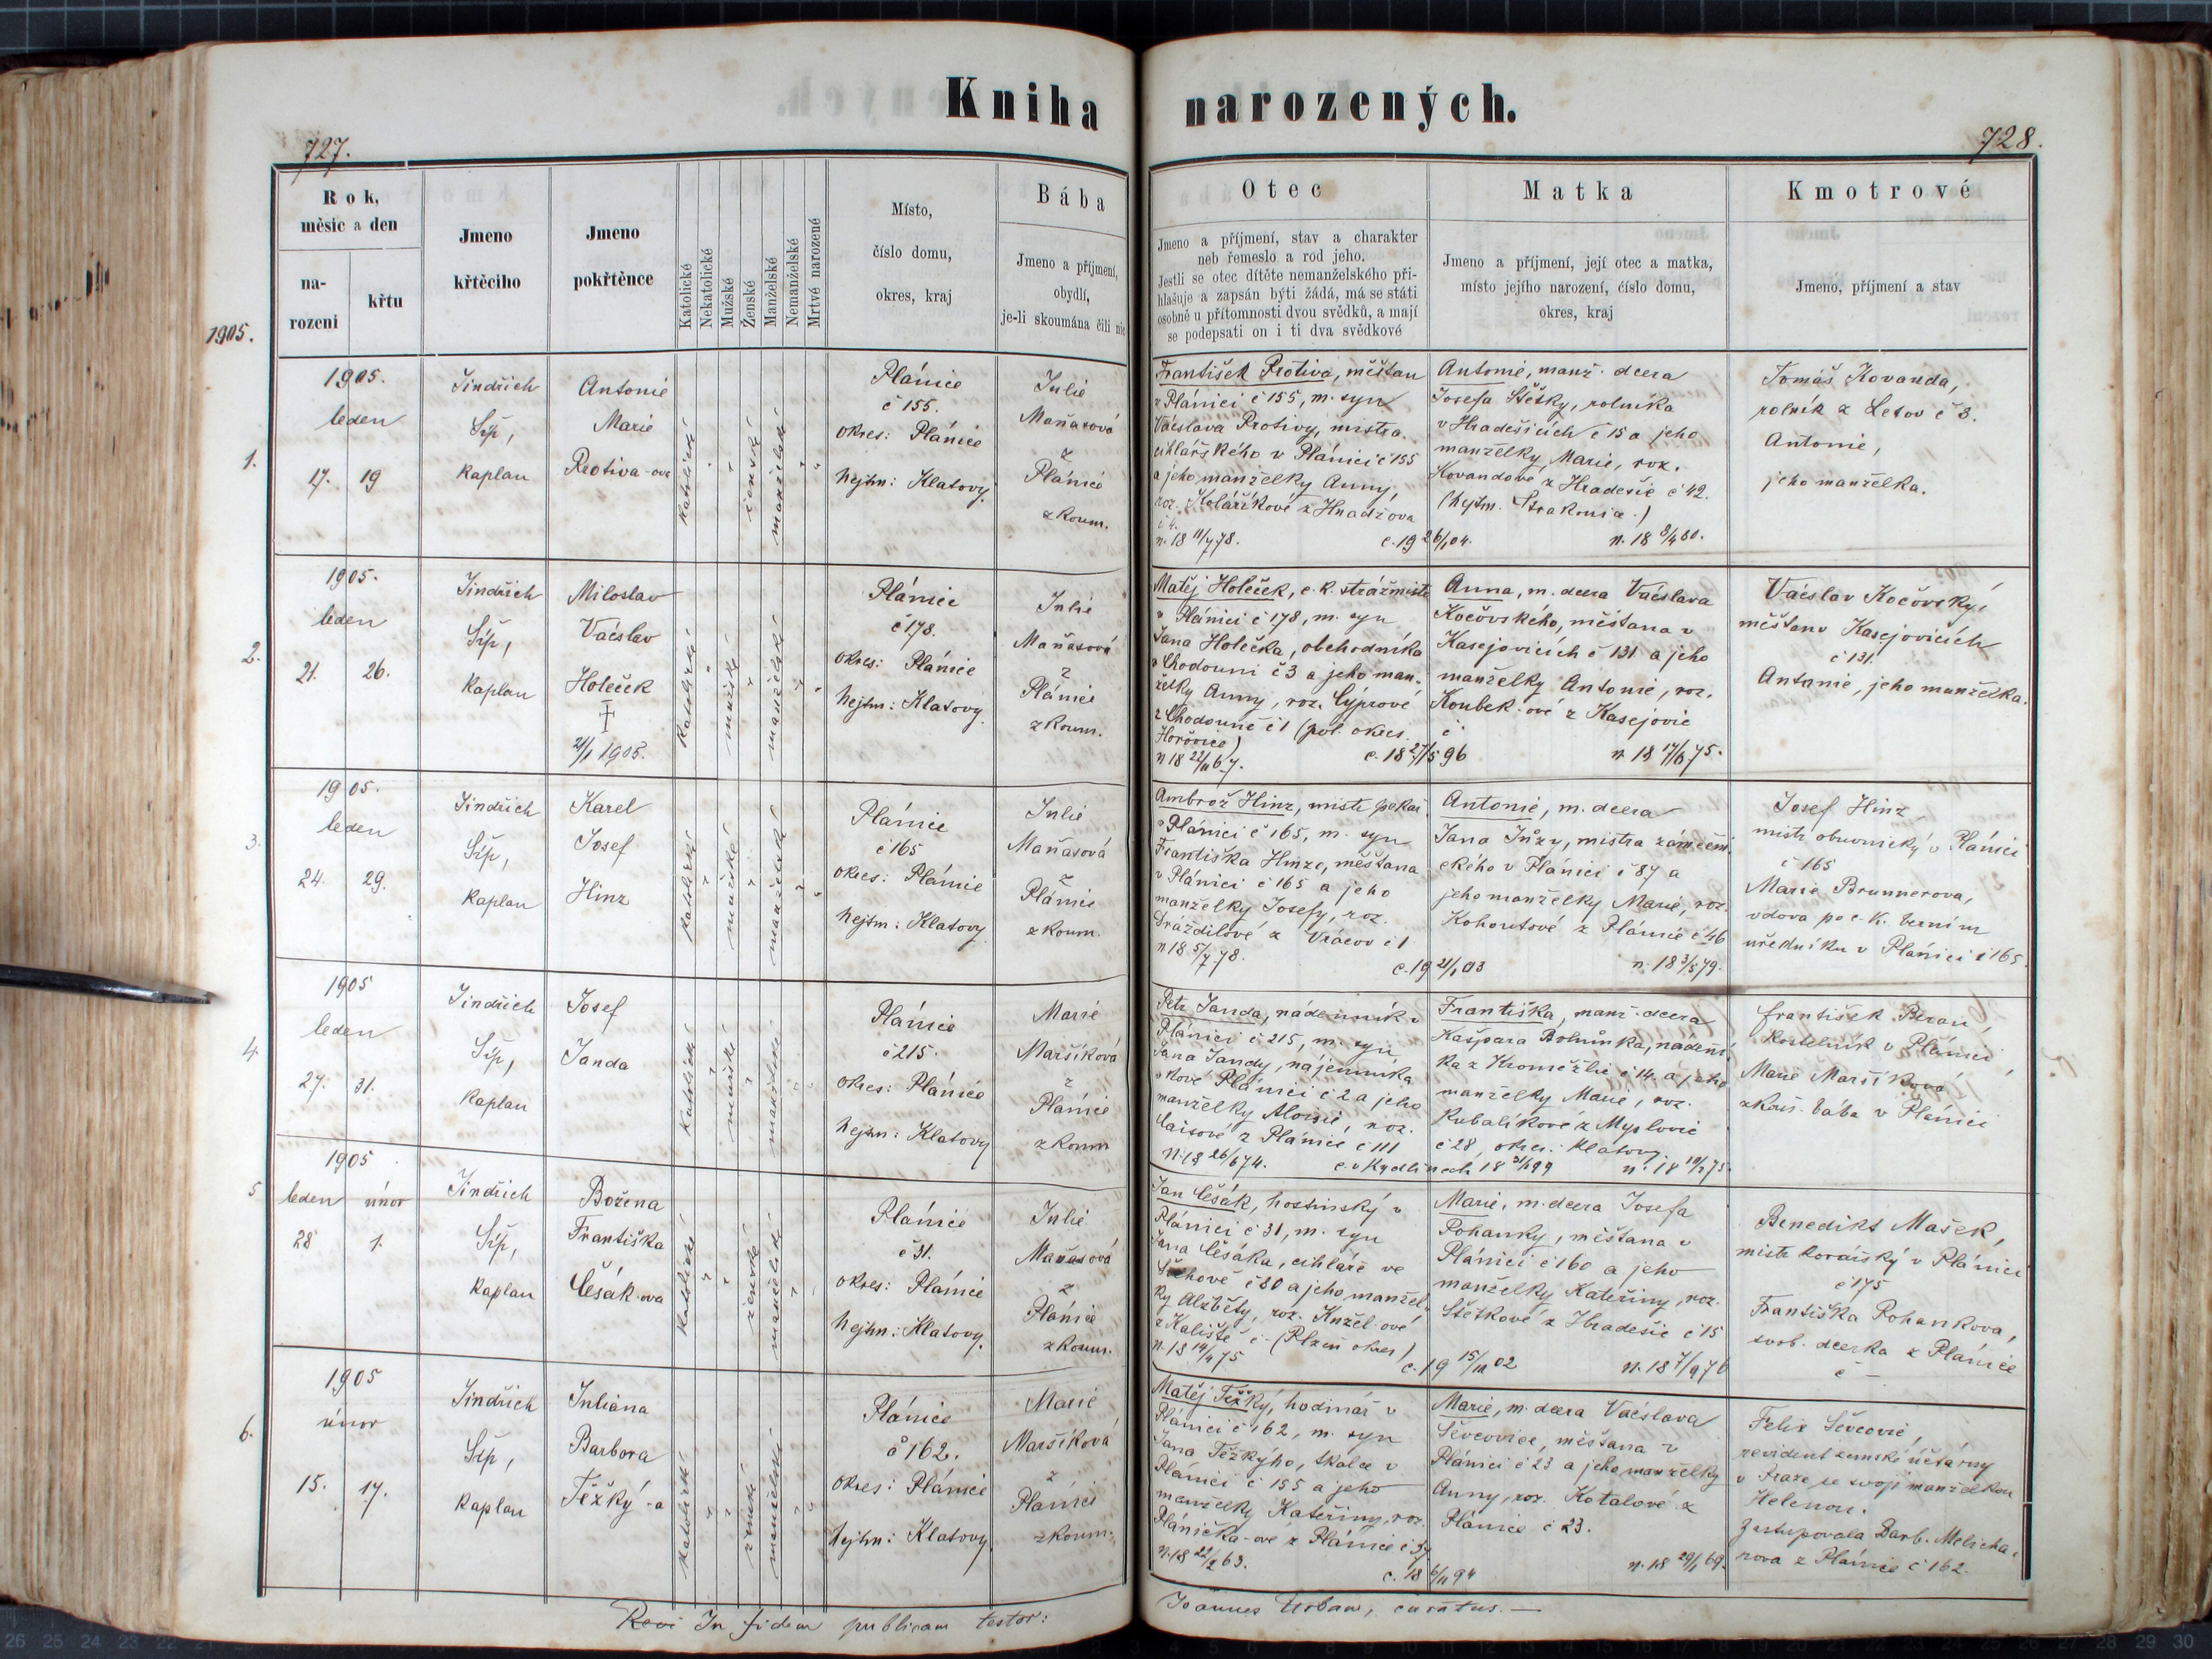 Kniha narozených.
727.
728.
Rok,
měsíc a den
na-
rození
křtu
Jmeno
křtěcího
Jmeno
pokřtěnce
Katolické
Nekatolické
Mužské
Ženské
Manželské
Nemanželské
Mrtvé narozené
Místo,
číslo domu,
okres, kraj
Bába
Jmeno a příjmení,
obydlí,
je-li skoumána čili nic
Otec
Jmeno a příjmení, stav a charakter
neb řemeslo a rod jeho.
Jestli se otec dítěte nemanželského při-
hlašuje a zapsán býti žádá, má se státi
osobně u přítomnosti dvou svědků, a mají
se podepsati on i ti dva svědkové
Matka
Jmeno a příjmení, její otec a matka,
místo jejího narození, číslo domu,
okres, kraj
Kmotrové
Jmeno, příjmení a stav
1905.
1.
1905.
leden
17. 19
Jindřich
Síp,
kaplan
Antonie
Marie
Protiva-ova
katolické
ženské
manželské
Plánice
č 155.
okres: Plánice
hejtm: Klatovy.
Julie
Maňasová
z
Plánice
zkoum.
František Protiva, měšťan
v Plánici č 155, m. syn
Václava Protivy, mistra
cihlářského v Plánici č 155
a jeho manželky Anny,
roz. Kolaříkové z Hnačova
č 4.
n. 18 11/7 78.
c. 19 26/1 04.
Antonie, manž. dcera
Josefa Štětky, rolníka
v Hradešicích č 15 a jeho
manželky Marie, roz.
Kovandove z Hradešic č 42.
(hejtm. Strakonice.)
n. 18 8/4 80.
Tomáš Kovanda,
rolník z Letov č 8.
Antonie,
jeho manželka.
2.
1905.
leden
21. 26.
Jindřich
Síp,
kaplan
Miloslav
Václav
Holeček
†
21/1 1905.
katolické
mužské
manželské
Plánice
č 178.
okres: Plánice
hejtm: Klatovy.
Julie
Maňasová
z
Plánice
zkoum.
Matěj Holeček, c. k. strážmistr
v Plánici č 178, m. syn
Jana Holečka, obchodníka
v Chodouni č 3 a jeho man-
želky Anny, roz. Cýprové
z Chodouně č 1 (pol. okres
Hořovice)
n 18 22/11 67.
c. 18 27/5 96
Anna, m. dcera Václava
Kočovského, měšťana v
Kasejovicích č 131 a jeho
manželky Antonie, roz.
Koubek-ové z Kasejovic
č
n. 18 17/6 75.
Václav Kočovský,
měšťan v Kasejovicích
č 131.
Antonie, jeho manželka.
3.
1905.
leden
24. 29.
Jindřich
Síp,
kaplan
Karel
Josef
Hinz
katolické
mužské
manželské
Plánice
č 165
okres: Plánice
hejtm: Klatovy
Julie
Maňasová
z
Plánice
zkoum.
Ambrož Hinz, mistr pekař.
v Plánici č 165, m. syn
Františka Hinze, měšťana
v Plánici č 165 a jeho
manželky Josefy, roz.
Dráždilové z Vracov č 1
n 18 5/7 78.
c. 19 21/1 03
Antonie, m. dcera
Jana Jůzy, mistra zámečni-
ckého v Plánici č 87 a
jeho manželky Marie, roz.
Kohoutové z Plánice č 46
n. 18 3/5 79.
Josef Hinz
mistr obuvnický v Plánici
č 165
Marie Brunnerova,
vdova po c. k. berním
úředníku v Plánici č 165.
4.
1905
leden
27. 31.
Jindřich
Síp,
kaplan
Josef
Janda
katolické
mužské
manželské
Plánice
č 215.
okres: Plánice
hejtm: Klatovy
Marie
Maršíková
z
Plánice
zkoum
Petr Janda, nádenník v
Plánici č 215, m. syn
Jana Jandy, nájemníka
v Nové Plánici č 2 a jeho
manželky Aloisie, roz.
Caisové z Plánice č 111
n. 18 26/6 74.
c. v Kydlinech 18 31/1 99
Františka, manž. dcera
Kašpara Bolnůnka, nádení-
ka z Kroměždic č 14 a jeho
manželky Marie, roz.
Kubalíkové z Myslovic
č 28, okres: Klatovy
František Beran,
kostelník v Plánici
Marie Maršíková
zkouš. bába v Plánici
5
1905
leden únor
28 1.
Jindřich
Síp,
kaplan
Božena
Františka
Cešák-ova
katolické
ženské
manželské
Plánice
č 31.
okres: Plánice
hejtm: Klatovy.
Julie
Maňasová
z
Plánice
zkoum.
Jan Cešák, hostinský v
Plánici č 31, m. syn
Jana Cešáka, cihláře ve
č 80 a jeho manžel-
ky Alžběty, roz. Kuželové
z Kaliště č - (Plzeň okres)
n. 18 14/4 75
c. 19 15/10 02
Marie, m. dcera Josefa
Pohanky, měšťana v
Plánici č 160 a jeho
manželky Kateřiny, roz.
Štětkové z Hradešic č 15
n. 18 7/9 76
Benedikt Mašek,
mistr kovářský v Plánici
č 175
Františka Pohankova,
svob. dcerka z Plánice
č —
6.
1905
únor
15. 17.
Jindřich
Síp,
kaplan
Juliana
Barbora
Těžký-a
katolické
ženské
manželské
Plánice
č 162.
okres: Plánice
hejtm: Klatovy
Marie
Maršíková
z
Plánici
zkoum.
Matěj Těžký, hodinář v
Plánici č 162, m. syn
Jana Těžkýho, tkalce v
Plánici č 155 a jeho
manželky Kateřiny, roz.
Plánička-ové z Plánice č 37
n. 18 22/2 63.
c. 18 6/11 94
Marie, m. dcera Václava
Ševcovice, měšťana v
Plánici č 23 a jeho manželky
Anny, roz. Kotalové z
Plánice č 23.
n. 18 29/1 69.
Felix Ševcovic,
revident zemské účtárny
v Praze se svojí manželkou
Helenou.
Zastupovala Barb. Melicha-
rova z Plánice č 162.
In fidem publicam testor:
Joannes Urban, curatus. —